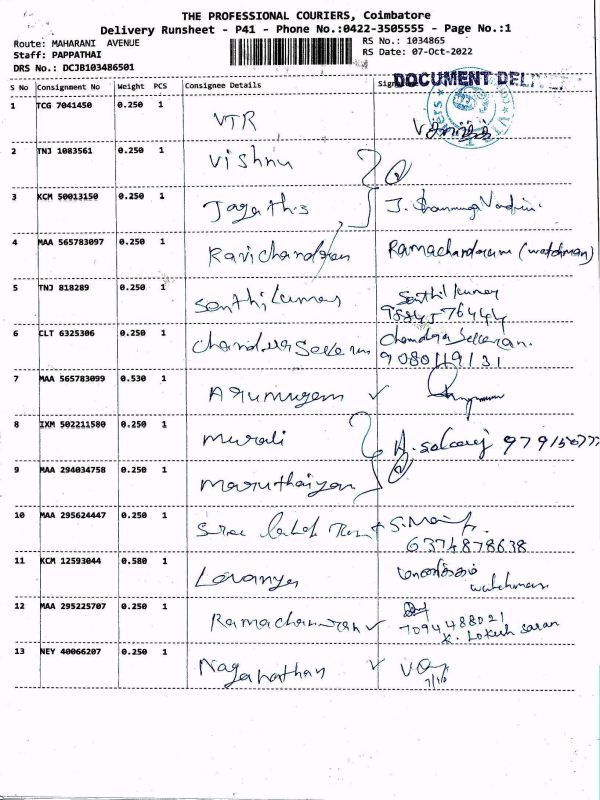 THE PROFESSIONAL COURIERS, Coimbatore
Delivery Runsheet - P41 - Phone No.:0422-3505555 - Page No.:1
Route: MAHARANI AVENUE RS No.: 1034865
Staff: PAPPATHAI RS Date: 07-Oct-2022
DRS No.: DCJB103486501
DOCUMENT
S No Consignment No Weight PCS Consignee Details
1 TCG 7041450 0.250 1 VTR
2 TNJ 1083561 0.250 1 Vishnu
3 KCM 50013150 0.250 1 Jagathis
4 MAA 565783097 0.250 1 Ravichandran Ramachandaram (watchman)
5 TNJ 818289 0.250 1 Senthilkumar Senthil Kumar
6 CLT 6325306 0.250 1 Chandra Sekaran Chandra Sekaran.
9080119131
7 MAA 565783099 0.530 1 Arumugam
8 IXM 502211580 0.250 1 Murali
9 MAA 294034758 0.250 1 Maruthaiyan
10 MAA 295624447 0.250 1
6374878638
11 KCM 12593044 0.580 1 Lavanya
watchman
12 MAA 295225707 0.250 1 Ramachandran
7094488021
K. Lokesh saran
13 NEY 40066207 0.250 1 Naganathan